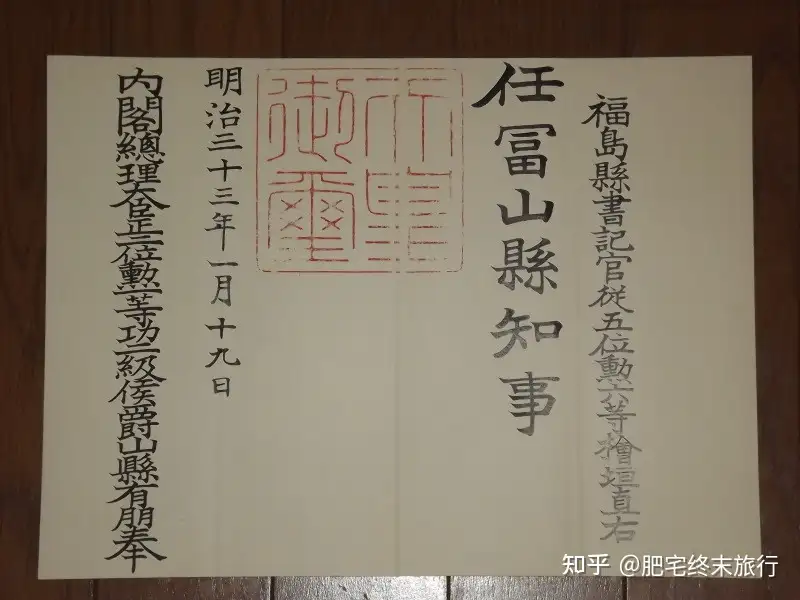 福島縣書記官従五位勲六等檜垣直右
任冨山縣知事
天皇御璽
明治三十三年一月十九日
内閣總理大臣正二位勲一等功二級侯爵山縣有朋奉
知乎 @肥宅终末旅行